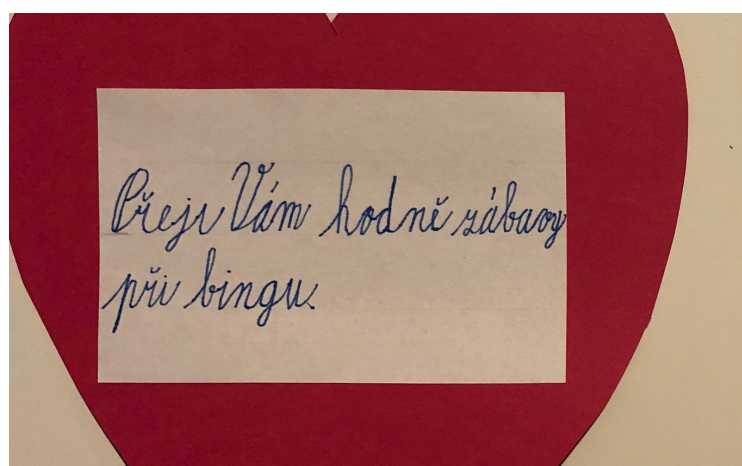 Přeji Vám hodně zábavy
při bingu.